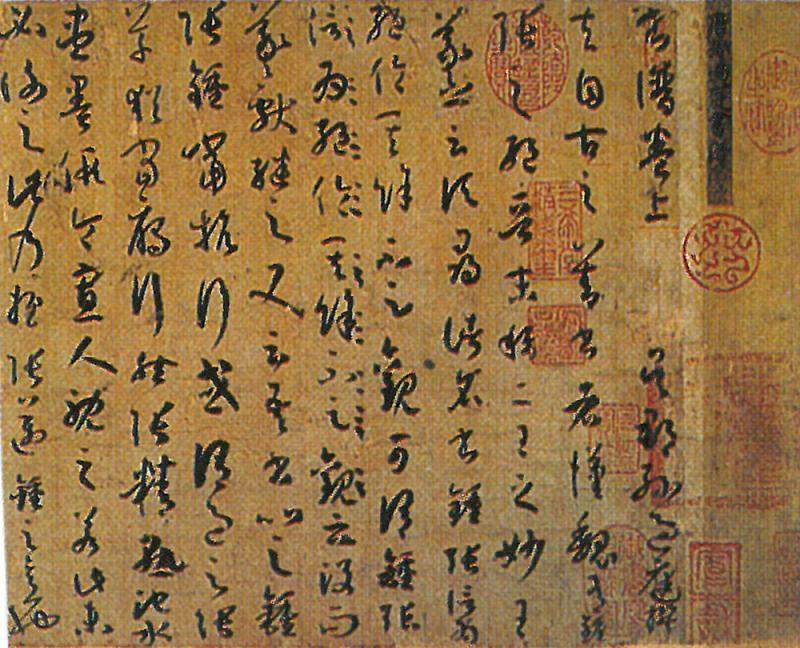 書譜卷上 吳郡孫過庭撰
夫自古之善書者漢魏有鍾
張之絕晉末稱二王之妙王
羲之云頃尋諸名書鍾張信為
絕倫其餘不足觀可謂鍾張
信為絕倫其餘不足觀云沒而
羲獻繼之又云吾書比之鍾
張鍾當抗行或謂過之張
草猶當鴈行然張精熟池水
盡墨假令寡人耽之若此未
必謝之此乃推張邁鍾之意也